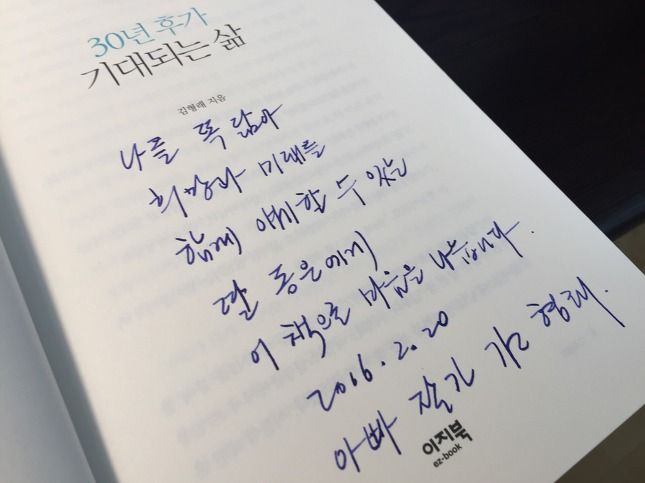 30년 후가
기대되는 삶
김형래 지음
나를 똑 닮아
희망과 미래를
함께 얘기할 수 있는
딸 동은에게
이 책으로 마음을 나눕니다.
2016. 2. 20
아빠 작가 김형래.
이지북
ez-book